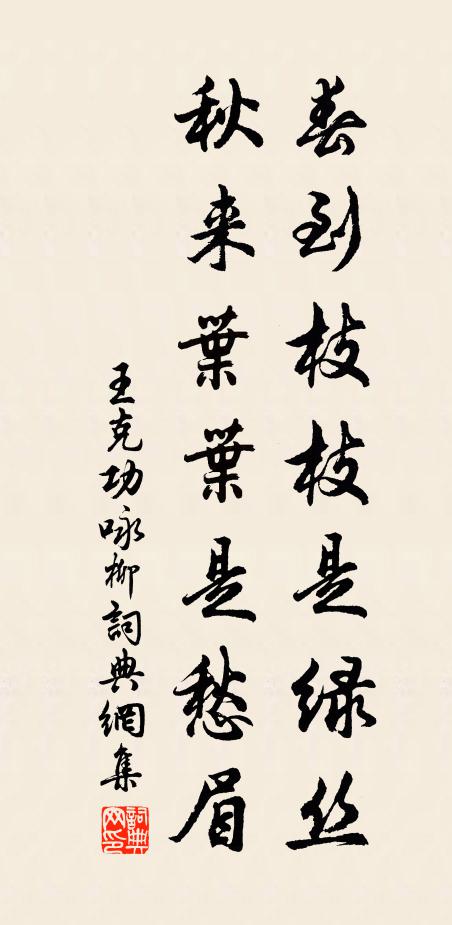 春到枝枝是绿丝
秋来葉葉是愁眉
王克功咏柳詞典網集
詞典网印